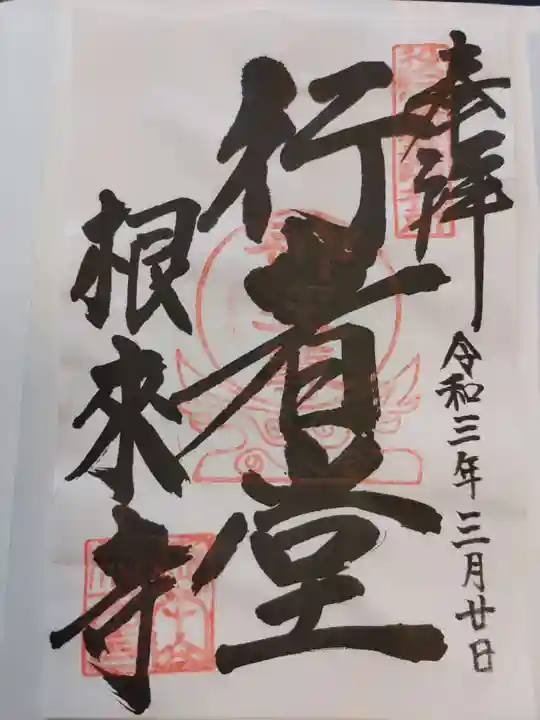 奉拝
令和三年三月廿日
行者堂
根來寺